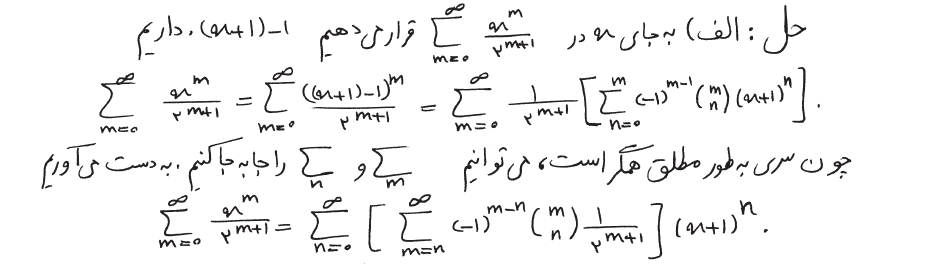 حل : الف) به جای x در $\sum_{m=0}^{\infty} \frac{x^m}{۲^{m+1}}$ قرار می دهیم (x+1)-1. داریم
$\sum_{m=0}^{\infty} \frac{x^m}{۲^{m+1}} = \sum_{m=0}^{\infty} \frac{((x+1)-1)^m}{۲^{m+1}} = \sum_{m=0}^{\infty} \frac{1}{۲^{m+1}} \left[ \sum_{n=0}^{m} (-1)^{m-1} \binom{m}{n} (x+1)^n \right].$
چون سری به طور مطلق همگر است، می توانیم $\sum_m$ و $\sum_n$ را جا به جا کنیم. به دست می آوریم
$\sum_{m=0}^{\infty} \frac{x^m}{۲^{m+1}} = \sum_{n=0}^{\infty} \left[ \sum_{m=n}^{\infty} (-1)^{m-n} \binom{m}{n} \frac{1}{۲^{m+1}} \right] (x+1)^n.$